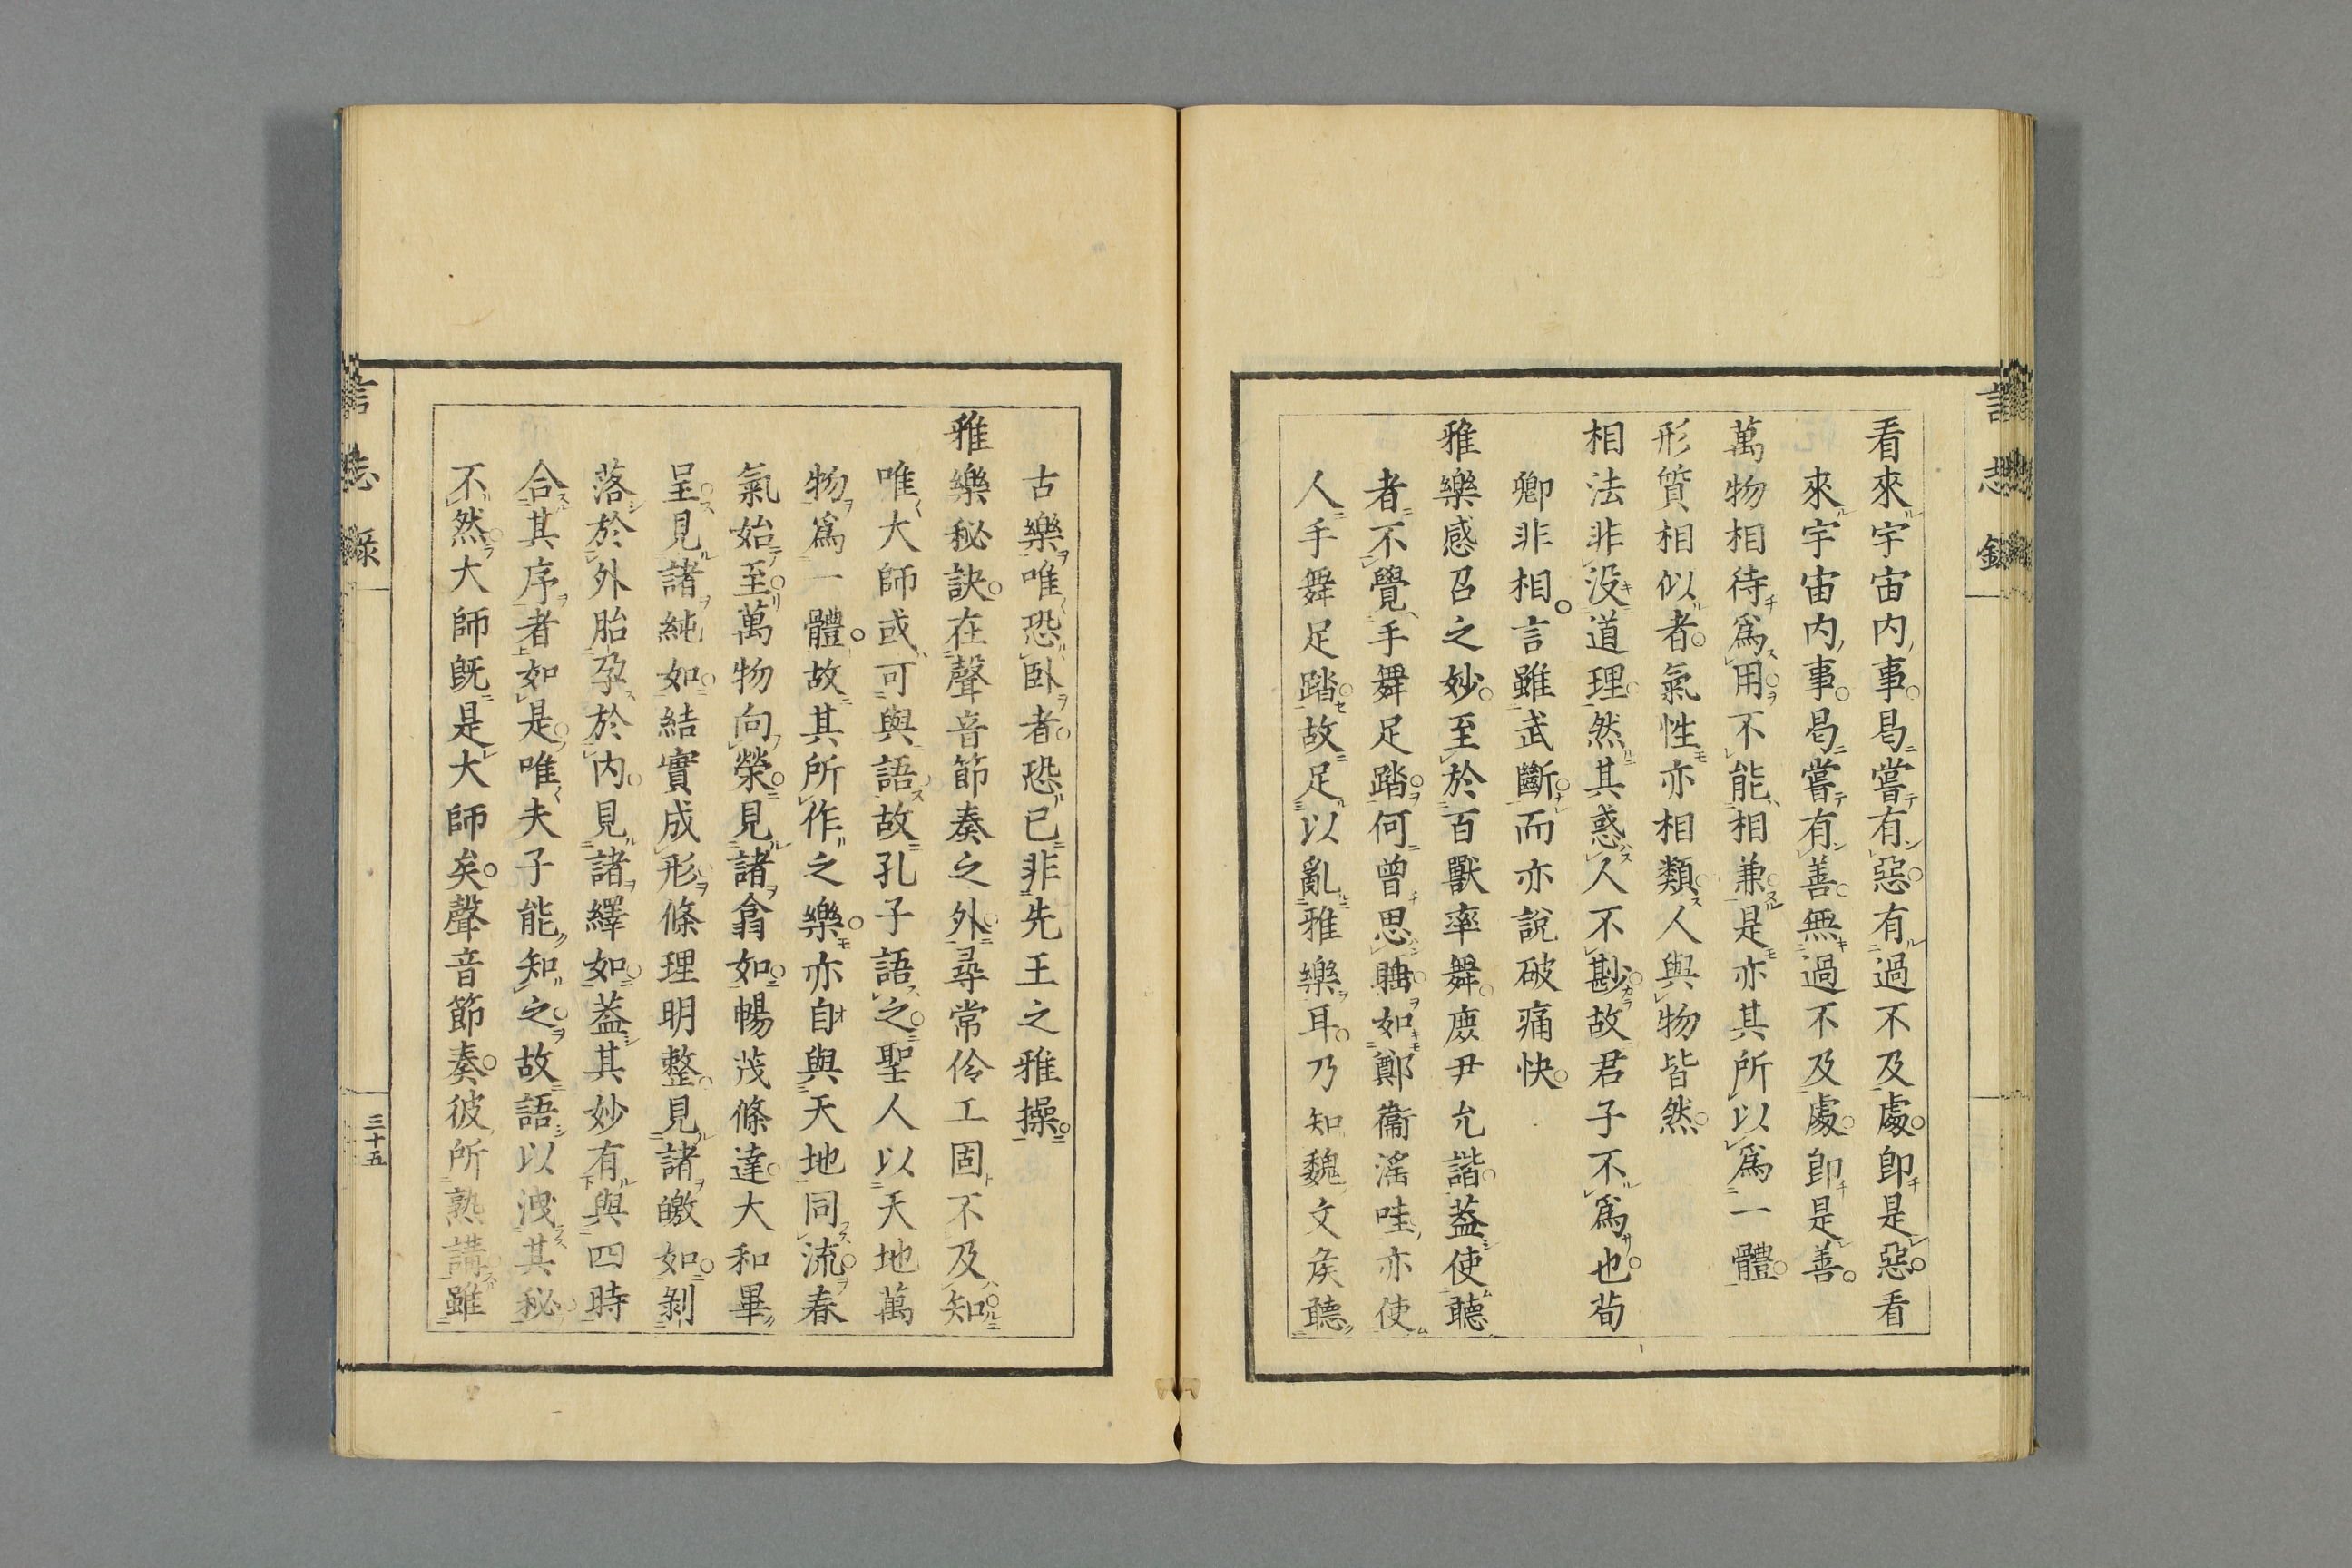 看來宇宙内事曷嘗有惡有過不及處卽是惡看
來宇宙内事曷嘗有善無過不及處卽是善
萬物相待爲用不能相兼是亦其所以爲一體
形質相似者氣性亦相類人與物皆然
相法非没道理然其惑人不尠故君子不爲也荀
卿非相言雖武斷而亦說破痛快
雅樂感召之妙至於百獸率舞庶尹允諧蓋使聽
者不覺手舞足踏何曾思睡如鄭衞滛哇亦使
人手舞足踏故足以亂雅樂耳乃知魏文矦聽
古樂唯恐卧者恐已非先王之雅操
雅樂秘訣在聲音節奏之外尋常伶工固不及知
唯大師或可與語故孔子語之聖人以天地萬
物爲一體故其所作之樂亦自與天地同流春
氣始至萬物向榮見諸翕如暢茂條達大和畢
呈見諸純如結實成形條理明整見諸皦如剝
落於外胎孕於内見諸繹如蓋其妙有與四時
合其序者如是唯夫子能知之故語以洩其秘
不然大師旣是大師矣聲音節奏彼所熟講雖
言志录
三十五